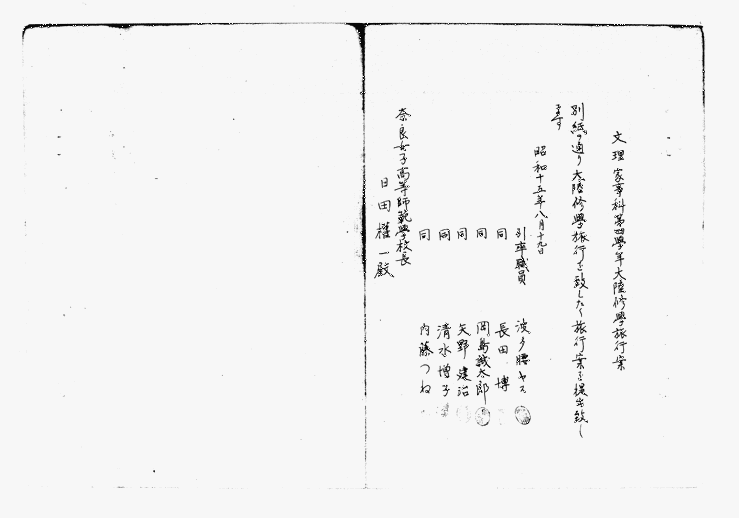 文理家事科第四學年大陸修學旅行案
別紙ノ通り大陸修學旅行を致したく旅行案を提出致し
ます
昭和十五年八月十九日
引率職員 波多腰ヤス
同 長田博
同 岡島誠太郎
同 矢野建治
同 清水増子
同 内藤つね
奈良女子高等師範學校長
日田權一殿